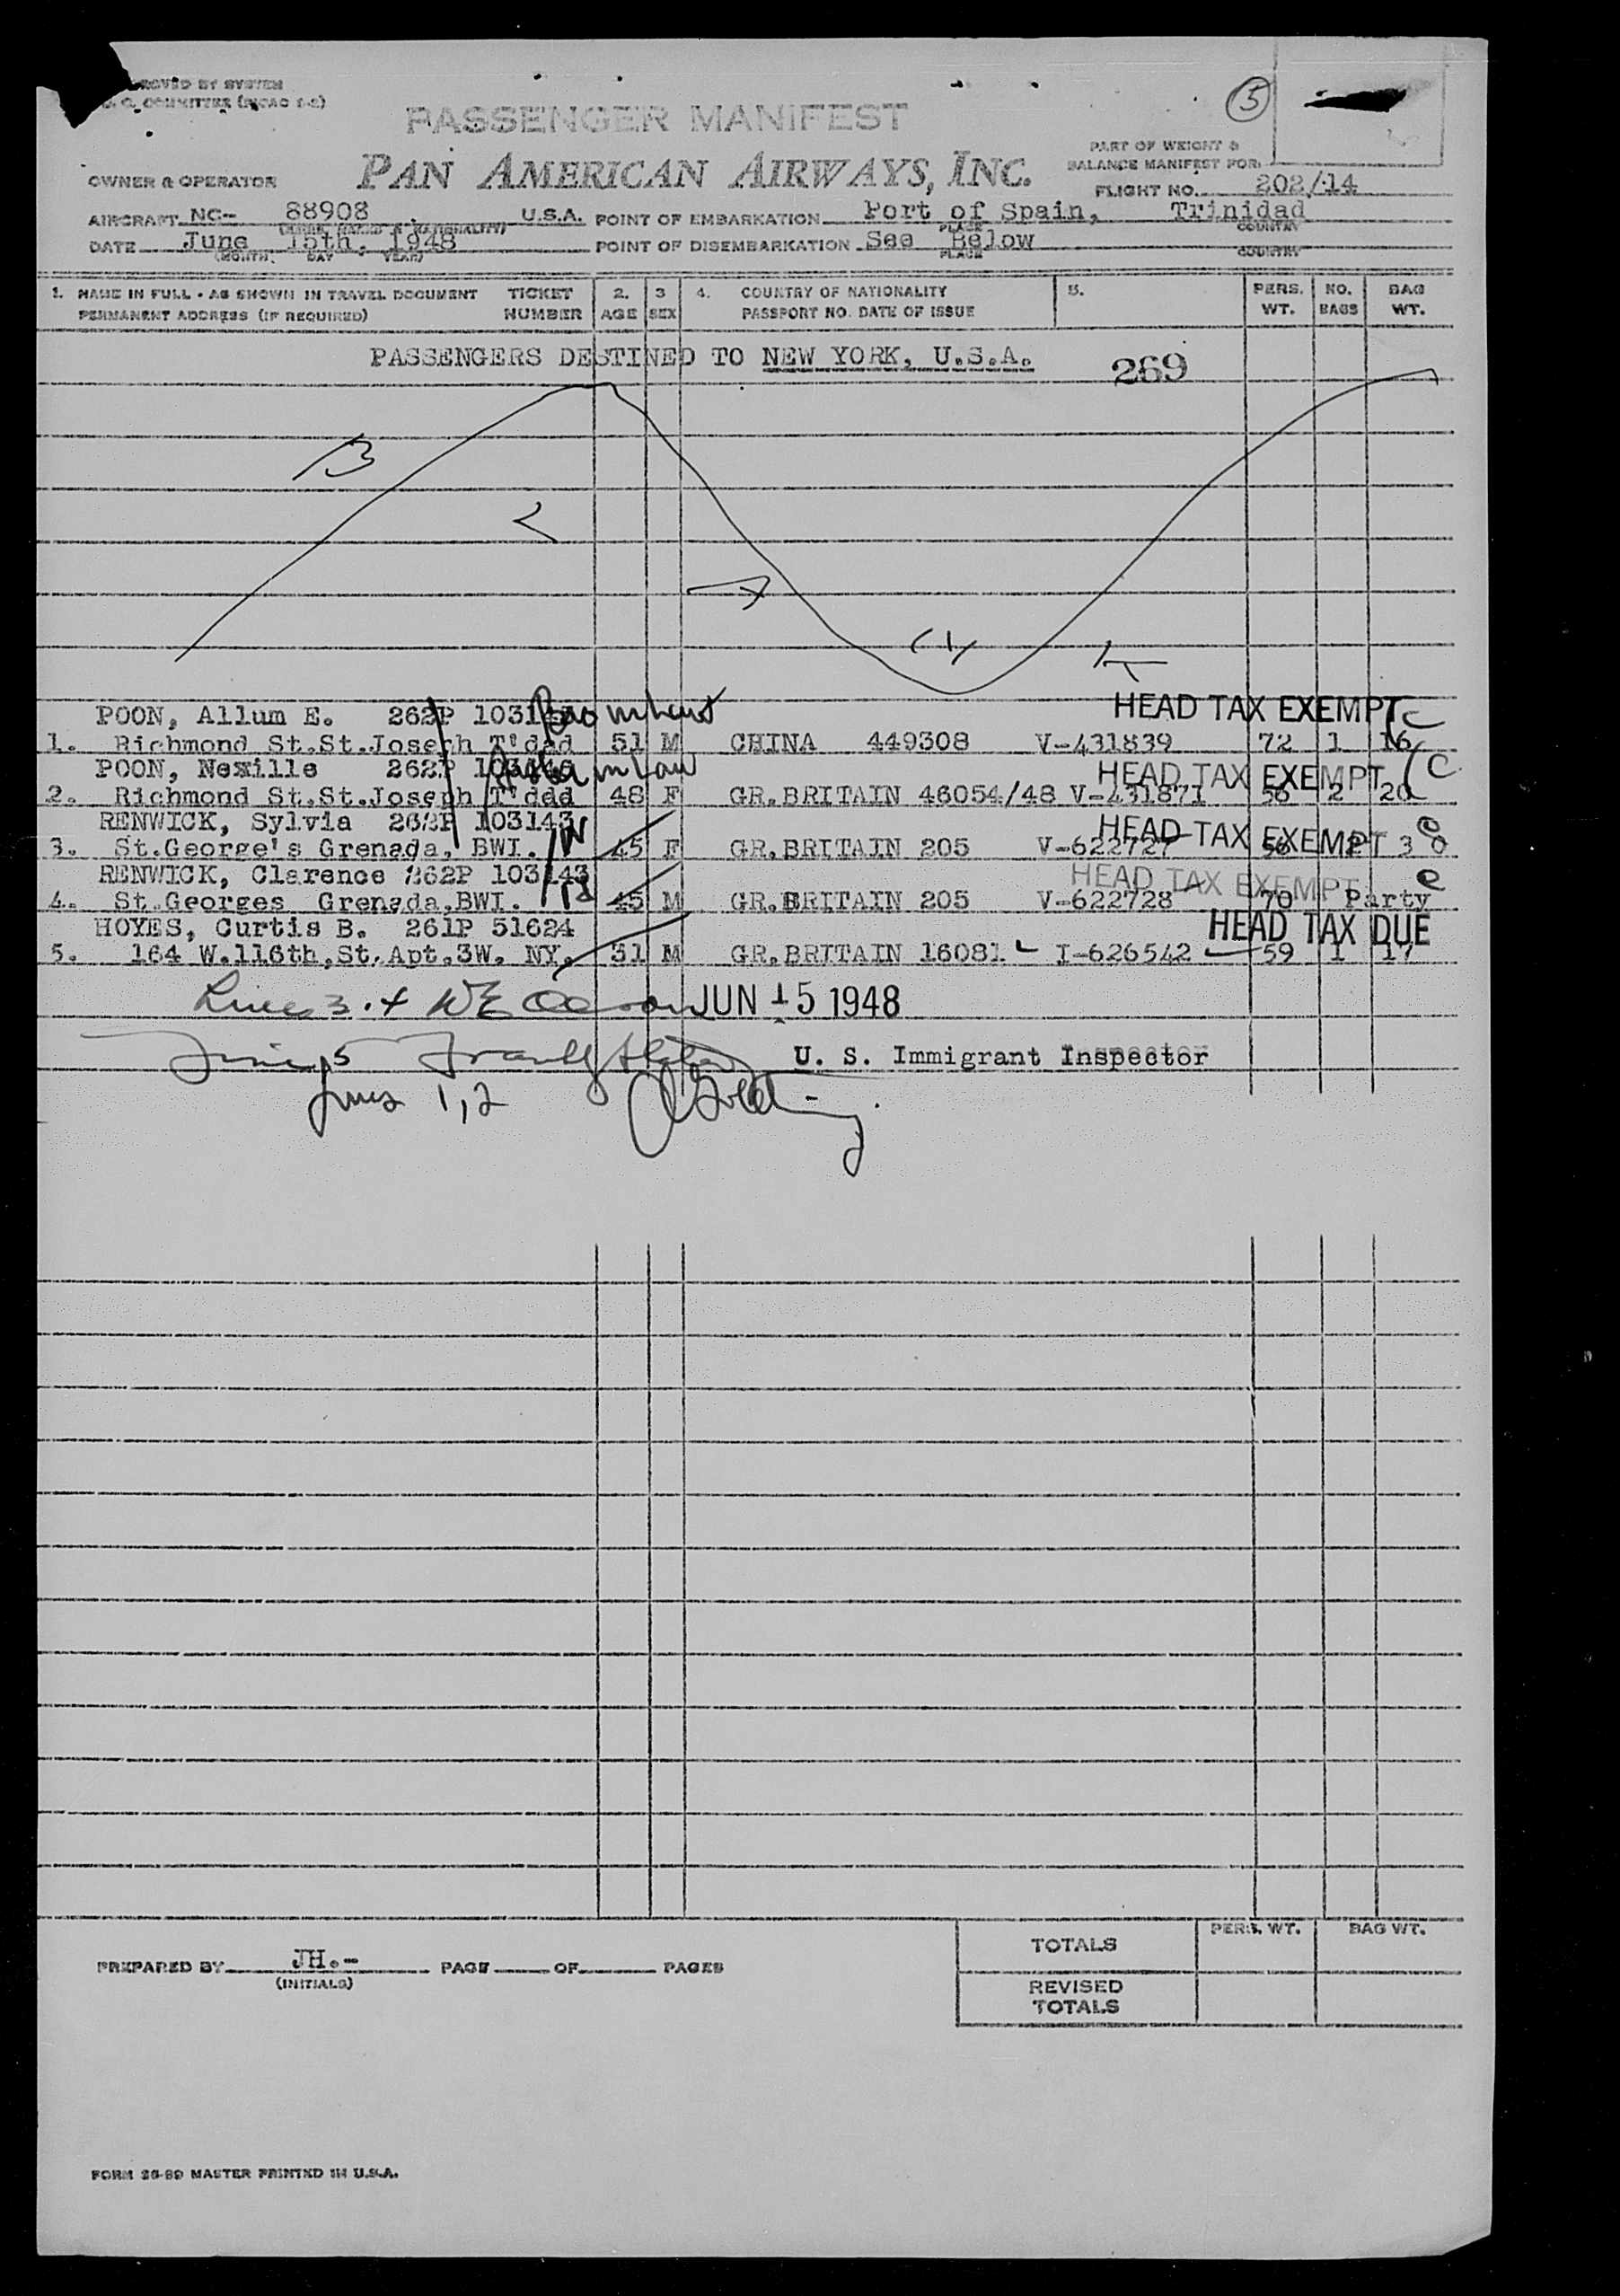 ROVED BY SYSTEM
COMMITTEE
5
PASSENGER MANIFEST
PAN AMERICAN AIRWAYS, INC.
PART OF WEIGHT &
BALANCE MANIFEST FOR:
OWNER & OPERATOR
FLIGHT NO. 202/14
AIRCRAFT NC- 88908 U.S.A. POINT OF EMBARKATION Port of Spain, Trinidad
PLACE COUNTRY
DATE June 15th, 1948 POINT OF DISEMBARKATION See Below
(MONTH, DAY YEAR) PLACE COUNTRY
1. NAME IN FULL - AS SHOWN IN TRAVEL DOCUMENT TICKET 2. 3 4. COUNTRY OF NATIONALITY 5. PERS. NO. BAG
PERMANENT ADDRESS (IF REQUIRED) NUMBER AGE SEX PASSPORT NO. DATE OF ISSUE WT. BAGS WT.
PASSENGERS DESTINED TO NEW YORK, U.S.A.
269
POON, Allum E. 262P HEAD TAX EXEMPT C
1. Richmond St.St.Joseph T'dad 51 M CHINA 449308 V-431839 72 1 16
POON, Nexille 262P in Law HEAD TAX EXEMPT C
2. Richmond St.St.Joseph T'dad 48 F GR.BRITAIN 46054/48 V-431871 56 2 20
RENWICK, Sylvia 262P 103143 HEAD TAX EXEMPT
3. St.George's Grenada, BWI. 45 F GR.BRITAIN 205 V-622727 56 2 30
RENWICK, Clarence 262P 103143 HEAD TAX EXEMPT
4. St.Georges Grenada,BWI. 45 M GR.BRITAIN 205 V-622728 70 Party
HOYES, Curtis B. 261P 51624 HEAD TAX DUE
5. 164 W.116th,St.Apt.3W. NY. 31 M GR.BRITAIN 16081 I-626542 59 1 17
JUN 15 1948
5 U. S. Immigrant Inspector
Lines 1,2
PERS. WT. BAG WT.
TOTALS
PREPARED BY JH.- PAGE OF PAGES
(INITIALS)
REVISED
TOTALS
FORM 26-89 MASTER PRINTED IN U.S.A.